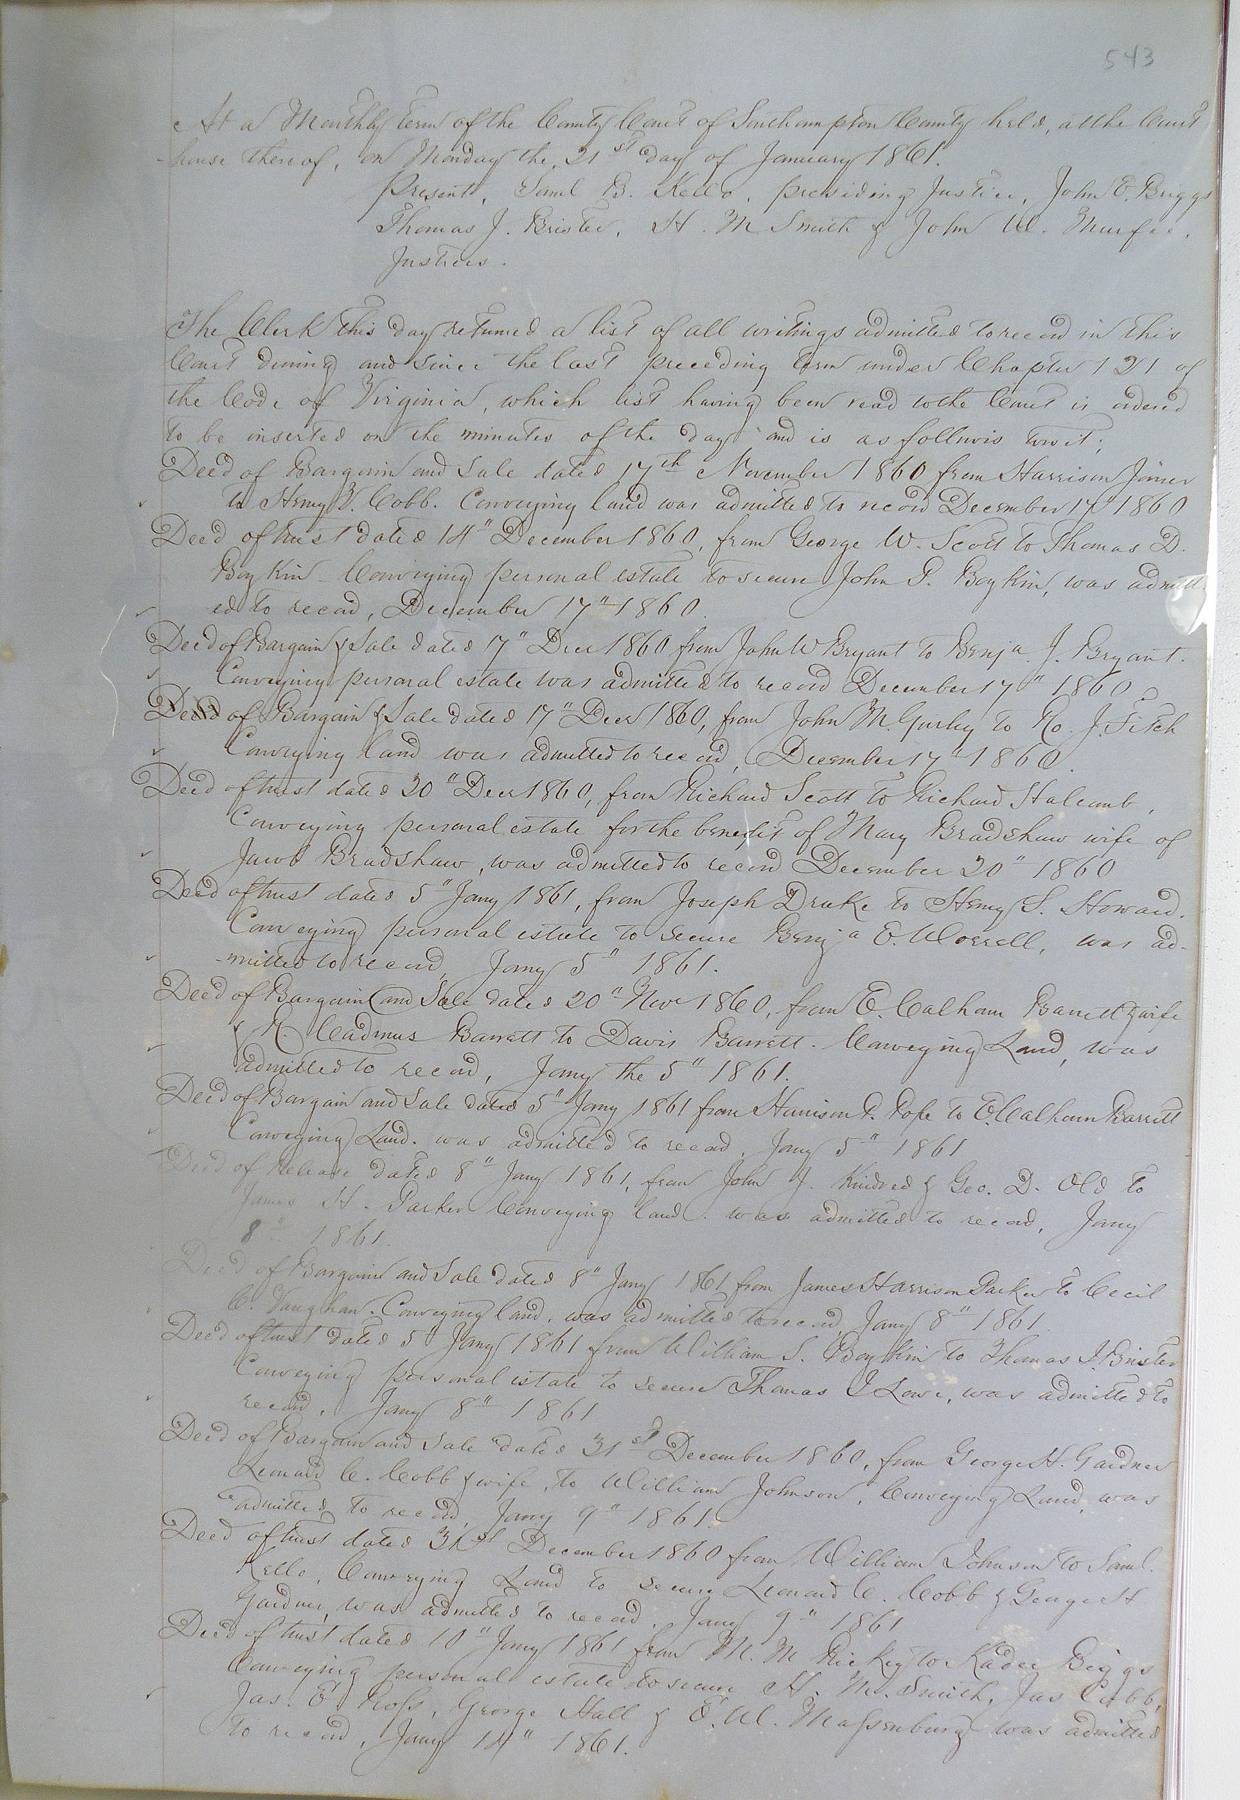 543
At a Monthly term of the County Court of Southampton County held, at the Court
house thereof, on Monday the 21st day of January 1861.
Present, Saml B. Kello, presiding Justice, John E. Briggs
Thomas J. Brister, H. M Smith & John W. Murfee,
Justices.
The Clerk this day returned a list of all writings admitted to record in this
Court during and since the last preceding term under Chapter 121 of
the Code of Virginia, which list having been read to the Court is ordered
to be inserted on the minutes of the day and is as follows towit;
Deed of Bargain and Sale dated 17th November 1860 from Harrison Joiner
to Henry V. Cobb. Conveying land was admitted to record December 17" 1860
Deed of trust dated 14" December 1860, from George W. Scott to Thomas D.
Boykin Conveying personal estate to secure John P. Boykin, was admitt
ed to record, December 17" 1860.
Deed of Bargain & Sale dated 17" Decr 1860 from John W Bryant to Benja. J. Bryant.
Conveying personal estate was admitted to record December 17" 1860
Deed of Bargain & Sale dated 17" Decr 1860, from John M. Gurley to Ro. J. Fitch
Conveying land was admitted to record, December 17" 1860
Deed of trust dated 20" Decr 1860, from Richard Scott to Richard Halcomb,
Conveying personal estate for the benefit of Mary Bradshaw wife of
Jacob Bradshaw, was admitted to record December 20" 1860
Deed of trust dated 5" Jany 1861, from Joseph Drake to Henry S. Howard.
Conveying personal estate to secure Benja E. Worrell, was ad-
mitted to record, Jany 5" 1861.
Deed of Bargain and Sale dated 20" Novr 1860, from E. Calhoun Barrett & wife
& Cadmus Barrett to Davis Barrett. Conveying Land, was
admitted to record, Jany the 5" 1861.
Deed of Bargain and Sale dated 5" Jany 1861 from Harrison P. Pope to E. Calhoun Barrett
Conveying Land. was admitted to record, Jany 5" 1861
Deed of release dated 8" Jany 1861, from John J. Kindred & Geo. D. Old to
James H. Parker Conveying land. was admitted to record, Jany
8" 1861.
Deed of Bargain and Sale dated 8" Jany 1861 from James Harrison Parker to Cecil
C. Vaughan. Conveying land, was admitted to record, Jany 8" 1861.
Deed of trust dated 5 Jany 1861 from William S. Boykin to Thomas J. Brister
Conveying personal estate to secure Thomas J Lowe, was admitted to
record, Jany 8" 1861
Deed of Bargain and Sale dated 31st December 1860, from George H. Gardner
Leonard C. Cobb & wife, to William Johnson, Conveying Land, was
admitted to record, Jany 9" 1861.
Deed of trust dated 31st December 1860 from William Johnson to Saml.
Kello, Conveying Land to secure Leonard C. Cobb & George H
Gardner, was admitted to record, Jany 9" 1861
Deed of trust dated 10" Jany 1861 from M. M Rickey to Kader Biggs
Conveying personal estate to secure H. M. Smith, Jas Cobb,
Jas. E. Ross, George Hall & E. W. Massenburg was admitted
to record, Jany 14" 1861.